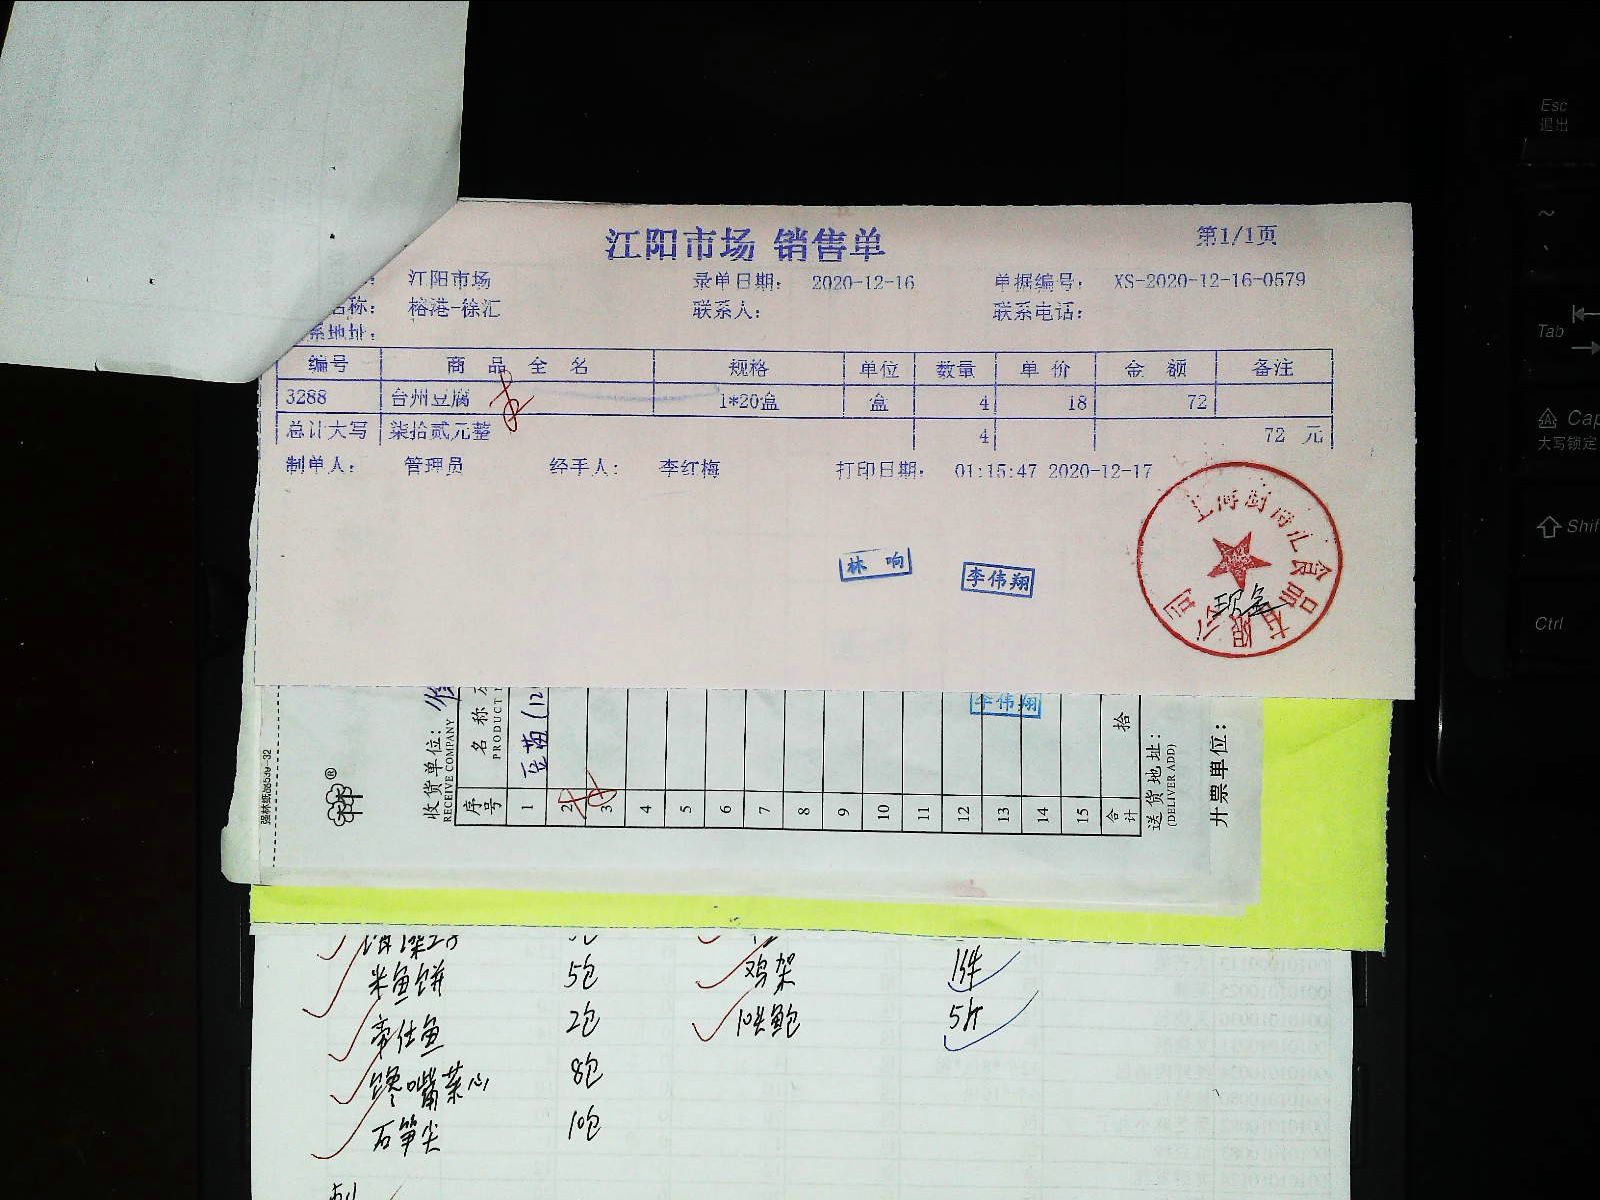 江阳市场 销售单
第1/1页
江阳市场 录单日期: 2020-12-16 单据编号: XS-2020-12-16-0579
名称: 榕港-徐汇 联系人: 联系电话:
系地址:
编号 商品全名 规格 单位 数量 单价 金额 备注
3288 台州豆腐 1*20盒 盒 4 18 72
总计大写 柒拾贰元整 4 72 元
制单人: 管理员 经手人: 李红梅 打印日期: 01:15:47 2020-12-17
林响
李伟翔
食品有限公司
李伟翔
收货单位:
RECEIVE COMPANY
序号 名称
PRODUCT
1 豆苗(12
2
3
4
5
6
7
8
9
10
11
12
13
14
15
合计 拾
送货地址:
(DELIVER ADD)
开票单位:
米鱼饼 5包 鸡架 1件
2包 5斤
馋嘴菜心 8包
石笋尖 10包
Esc
退出
~
Tab
Cap
大写锁定
Shif
Ctrl